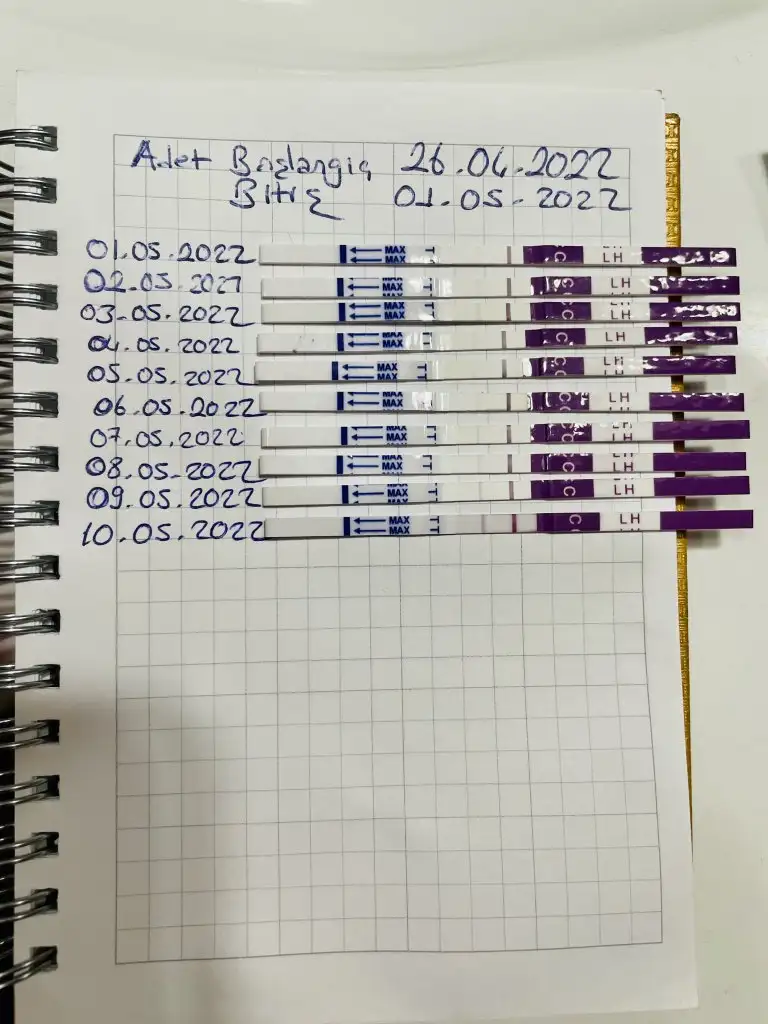 Adet Başlangıç 26.04.2022
Bitiş 01.05.2022
01.05.2022 MAX MAX T C LH
02.05.2021 MAX MAX T C LH
03-05.2022 MAX MAX T C LH
04.05.2022 MAX MAX T C LH
05.05.2022 MAX MAX T C LH
06.05.2022 MAX MAX T C LH
07.05.2022 MAX MAX T C LH
08.05-2022 MAX MAX T C LH
09.05.2022 MAX MAX T C LH
10.05.2022 MAX MAX T C LH